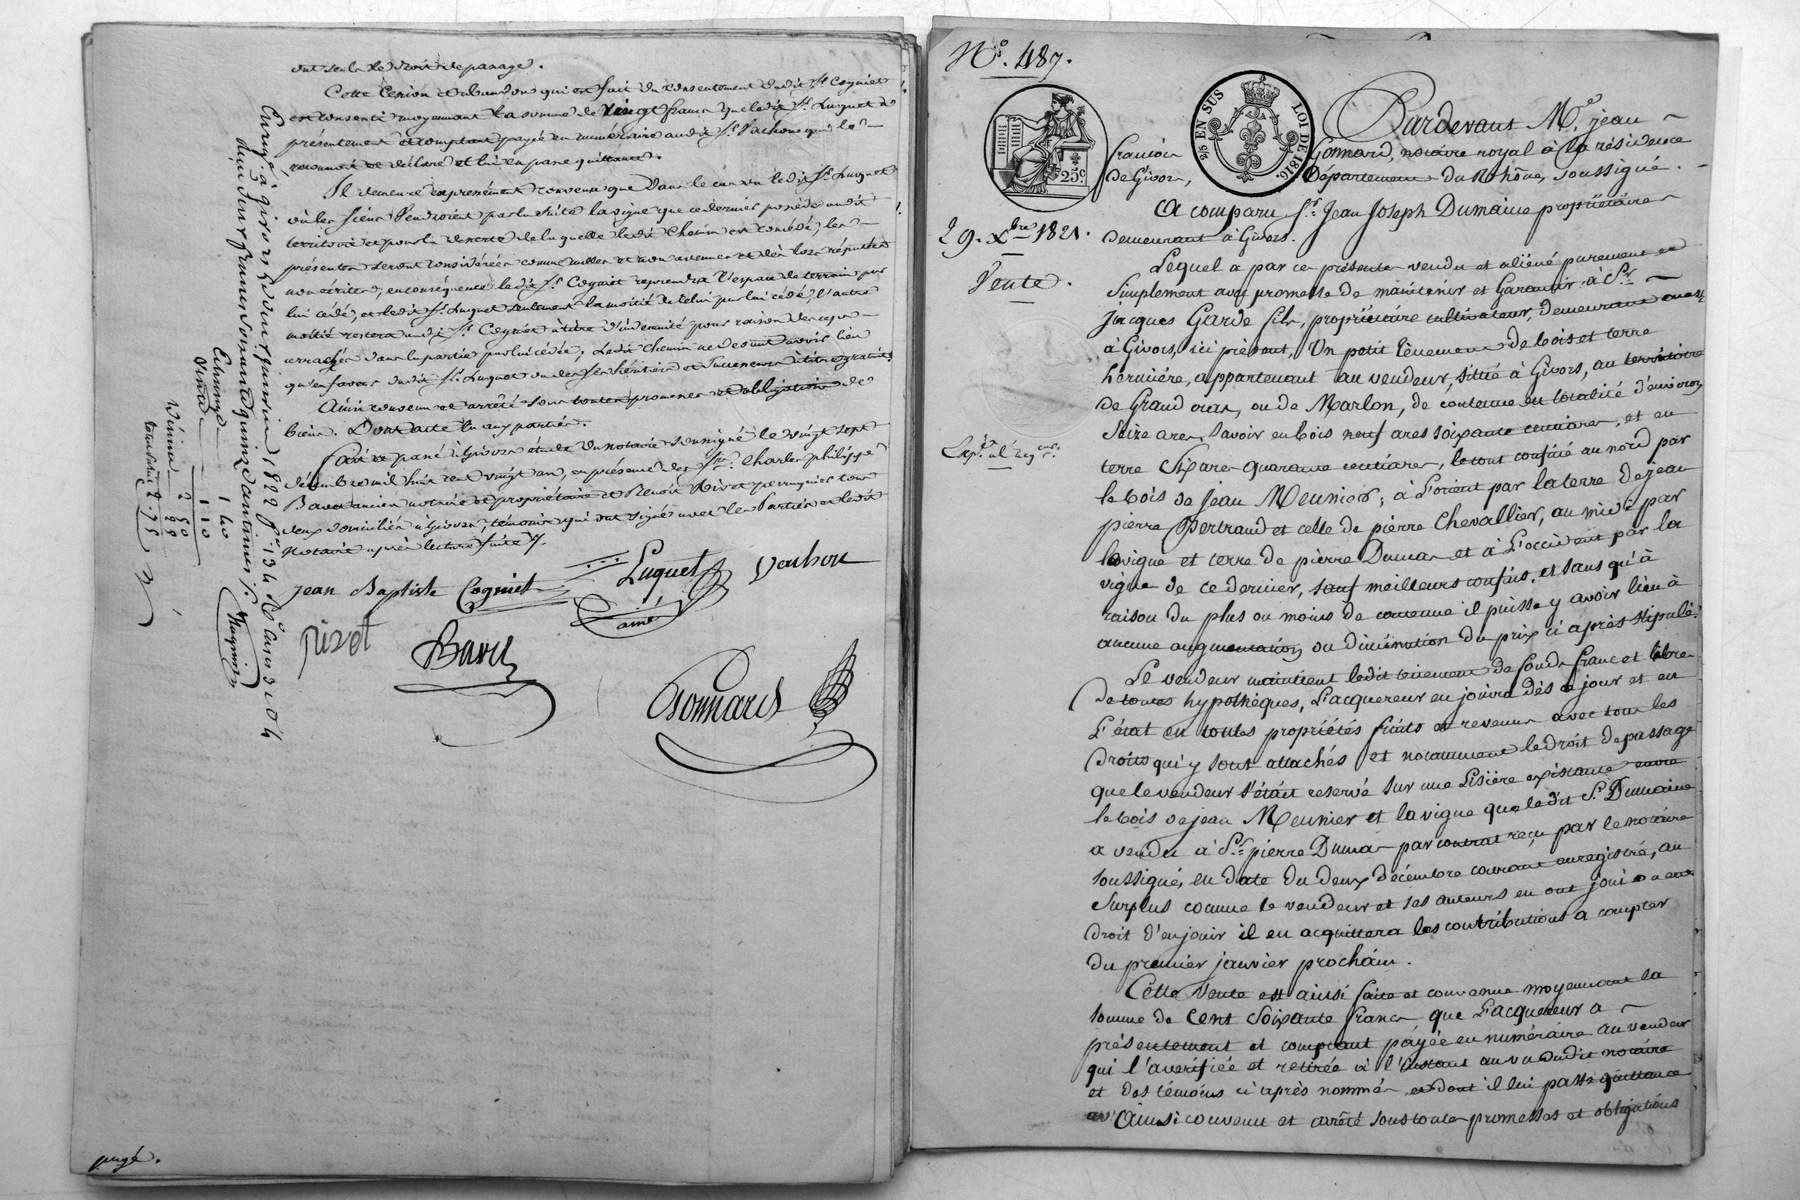 ont seuls le droit de passage.
Cette cession et abandon qui est fait du consentement dudit Sr. Cogniet
est consenti moyennant la somme de vingt francs que ledit Sr. Luquet a
présentement et comptant payée en numéraire audit Sr. Vachon qui le
reconnait le déclare et lui en passe quittance.
Il demeure expressément convenu que dans le cas où ledit Sr. Luquet
ou les siens vendroient par la suite la vigne que ce dernier possède audit
territoire et pour la desserte de laquelle ledit chemin est concédé, les
présentes seront considérées comme nulles et non avenues et dès lors réputées
non écrites, en conséquence ledit Sr. Cogniet reprendra l'espace de terrain par
lui cédé, et ledit Sr. Luquet seulement la moitié de celui par lui cédé, l'autre
moitié restera audit Sr. Cogniet à titre d'indemnité pour raison des ceps
arrachés dans la partie par lui cédée. Ledit chemin ne devant avoir lieu
qu'en faveur dudit Sr. Luquet ou de ses héritiers et successeurs à titre gratuit.
Ainsi convenu et arrêté sous toutes promesses et obligations de
biens. Dont acte lu aux parties.
Fait et passé à Givors étude du notaire soussigné le vingt sept
décembre mil huit cent vingt un, en présence des Srs. Charles philippe
Bavet ancien notaire et propriétaire et Benoit Rivet perruquier tous
deux domiciliés à Givors témoins qui ont signé avec les parties et ledit
Notaire après lecture faite.
jean Baptiste Cogniet Luquet Vachon
ainé
Rivet Bavet
Gonnard
Enregé. à givors le deux janvier 1822 fo. 134
deux francs soixante quinze centimes
Echange 1 40
Vente 1 10
2 50
Décime 25
total 2.75
purgé.
No. 487.
25 EN SUS
LOI DE 1816.
25c
Pardevant Me. jean
françois Gonnard, notaire royal à la résidence
de Givors, Département du Rhône, soussigné.
A comparu Sr. Jean Joseph Dumaine propriétaire
29. Xbre 1821. demeurant à Givors.
Vente.
Lequel a par ces présentes vendu et aliéné purement et
simplement avec promesse de maintenir et Garantir à Sr.
jacques Garde fils, propriétaire cultivateur, demeurant aussi
à Givors, ici présent, Un petit tènement de bois et terre
hermière, appartenant au vendeur, situé à Givors, au territoire
de Grand cras, ou de Marlon, de contenue en totalité d'environ
Seize ares, Savoir en bois neuf ares soixante centiares, et en
terre Six ares quarante centiares, le tout confiné au nord par
le bois de jean Meunier; à l'orient par la terre de jean
pierre Bertraud et celle de pierre Chevallier, au midi par
la vigne et terre de pierre Dumas et à l'occident par la
vigne de ce dernier, sauf meilleurs confins, et sans qu'à
raison du plus ou moins de contenue il puisse y avoir lieu à
aucune augmentation ou diminution du prix ci après stipulé.
Le vendeur maintient ledit tènement de fonds franc et libre
de toutes hypothèques, L'acquereur en jouira dès ce jour et en
l'état en toutes propriétés fruits et revenus avec tous les
droits qui y sont attachés et notamment le droit de passage
que le vendeur s'était reservé sur une Lisière existante entre
le bois de jean Meunier et la vigne que ledit Sr. Dumaine
a vendu à Sr. pierre Dumas par contrat reçu par le notaire
soussigné, en date du deux décembre courant enregistré, au
Surplus comme le vendeur et ses auteurs en ont joui ou eu
droit d'en jouir il en acquittera les contributions a compter
du premier janvier prochain.
Cette vente est ainsi faite et convenue moyennant la
somme de cent soixante francs que l'acquereur a
présentement et comptant payée en numéraire au vendeur
qui l'a vérifiée et retirée à l'instant au vu dudit notaire
et des témoins ci après nommés et dont il lui passe quittance
Ainsi convenu et arrêté sous toutes promesses et obligations